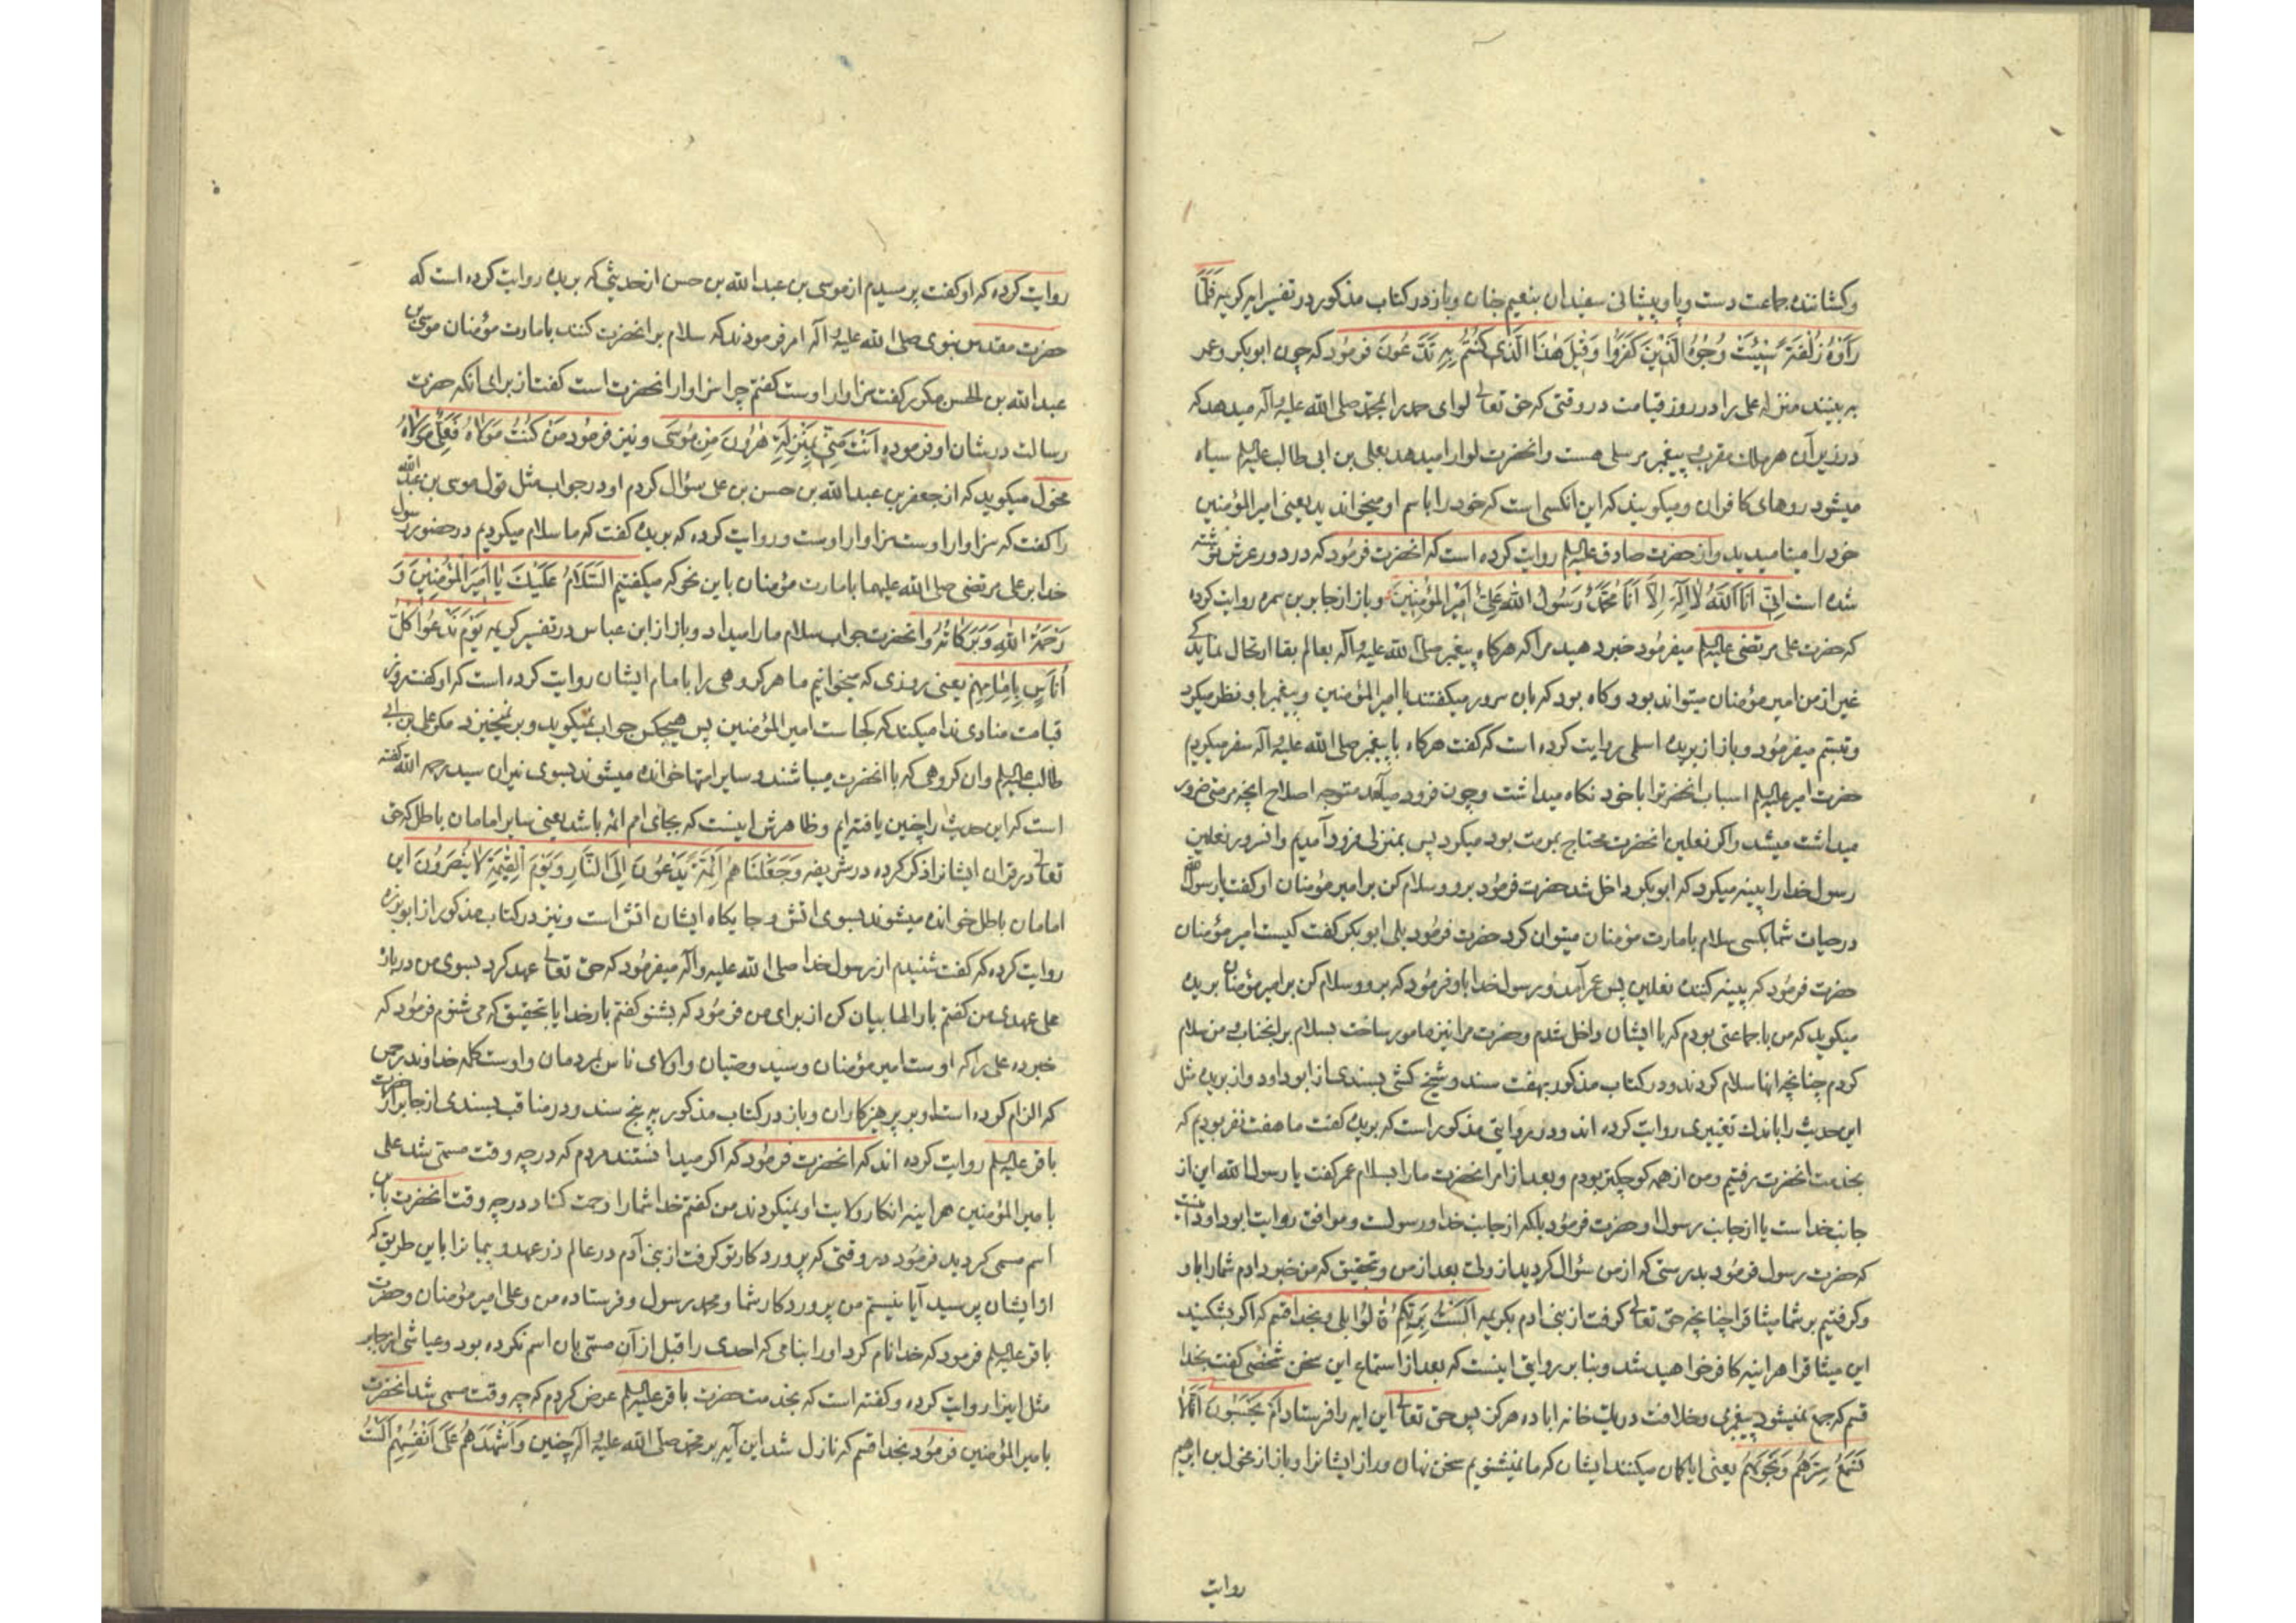 وکشانندهٔ جماعت دست وپا وپیشانی سفیدان بنعیم جنان وباز در کتاب مذکور در تفسیر ایه کریمه فَلَمَّا
رَأَوْهُ زُلْفَةً سٖیْئَتْ وُجُوهُ الَّذٖینَ کَفَرُوا وَقٖیْلَ هٰذَا الَّذٖی کُنْتُمْ بِهٖ تَدَّعُونَ فرمُود که چون ابوبکر وعمر
به بینند منزلهٔ علی را در روز قیامت در وقتی که حق تعالی لوای حمد را بمحمد صلی الله علیه وآله میدهد که
در زیر آن هر ملك مقرب و پیغمبر مرسلی هست وانحضرت لوا را میدهد بعلی بن ابی طالب علیه السلم سیاه
میشود روهای کافران ومیکویند که این انکسی است که خود را باسم او میخواندید یعنی امیرالمؤمنین
خود را مینامیدید واز حضرت صادق علیه السلم روایت کرده است که انحضرت فرمود که در دور عرش نوشته
شده است اِنّٖی اَنَا اللهُ لاٰ اِلٰهَ اِلاَّ اَنَا مُحَمَّدٌ رَسُولُ اللهِ عَلِیٌّ اَمٖیْرُ الْمُؤْمِنٖینَ وباز از جابر بن سمره روایت کرده
که حضرت علی مرتضی علیه السلم میفرمُود خبر دهید مرا که هرکاه پیغمبر صلی الله علیه وآله بعالم بقا ارتحال نماید کی
غیر از من امیر مؤمنان میتواند بود وکاه بود که بان سرور میکفتند یا امیرالمؤمنین وپیغمبر باو نظر میکرد
وتبسّم میفرمُود وباز از بریدهٔ اسلمی روایت کرده است که کفت هرکاه با پیغمبر صلی الله علیه وآله سفر میکردیم
حضرت امیر علیه السلم اسباب انحضرترا با خود نکاه میداشت وچون فرود میآمد متوجه اصلاح انچه مرمتی ضرور
میداشت میشد واکر نعلین انحضرت محتاج بمرمت بود میکرد پس بمنزلی فرود آمدیم وانسرور نعلین
رسول خدا را پینه میکرد که ابوبکر داخل شد حضرت فرمُود برو وسلام کن بر امیر مؤمنان او کفت یا رسول الله
در حیات شما بکسی سلام بامارت مؤمنان میتوان کرد حضرت فرمُود بلی ابوبکر کفت کیست امیر مؤمنان
حضرت فرمُود که پینه کنندهٔ نعلین پس عمر آمد ورسول خدا باو فرمُود که برو وسلام کن بر امیر مؤمنان بریده
میکوید که من با جماعتی بودم که با ایشان داخل شدم وحضرت مرا نیز مامور ساخت بسلام بر انجناب ومن سلام
کردم چنانچه انها سلام کردند ودر کتاب مذکور بهفت سند وشیخ کشی بسندی از ابو داود واز بریده مثل
این حدیث را باندك تغییری روایت کرده اند ودر روایتی مذکور است که بریده کفت ما هفت نفر بودیم که
بخدمت انحضرت رفتیم ومن از همه کوچکتر بودم وبعد از امر انحضرت ما را بسلام عمر کفت یا رسول الله این از
جانب خداست یا از جانب رسول او حضرت فرمُود بلکه از جانب خدا ورسولست وموافق روایت ابو داود انست
که حضرت رسول فرمُود بدرستی که از من سُؤال کردید از ولیّ بعد از من وبتحقیق که من خبر دادم شما را باو
وکرفتیم بر شما میثاق را چنانچه حق تعالی کرفت از بنی ادم بکریمه اَلَسْتُ بِرَبِّکُمْ قٰالُوا بَلی وبخدا قسم که اکر بشکنید
این میثاق را هراینه کافر خواهید شد وبنا بر روایتی اینست که بعد از استماع این سخن شخصی کفت بخدا
قسم که جمع نمیشود پیغمبری وخلافت در یك خانه اباده هرکز پس حق تعالی این ایه را فرستاد اَمْ یَحْسَبُونَ اَنَّا لاٰ
نَسْمَعُ سِرَّهُمْ وَنَجْوٰیهُمْ یعنی ایا کمان میکنند ایشان که ما نمیشنویم سخن نهان وراز ایشانرا وباز از مخول بن ابرهیم
روایت
روایت کرده که او کفت پرسیدم از موسی بن عبدالله بن حسن از حدیثی که بریده روایت کرده است که
حضرت مقدس نبوی صلی الله علیه وآله امر فرمودند که سلام بر انحضرت کنند بامارت مؤمنان موسی بن
عبدالله بن الحسن مکرر کفت سزاوار اوست کفتم چرا سزاوار انحضرت است کفت از برای انکه حضرت
رسالت در شان او فرموده اَنْتَ مِنّٖی بِمَنْزِلَةِ هٰرُونَ مِنْ مُوسیٰ ونیز فرمُود مَنْ کُنْتُ مَوْلاٰهُ فَعَلِیٌّ مَوْلاٰهُ
مخول میکوید که از جعفر بن عبدالله بن حسن بن علی سؤال کردم او در جواب مثل قول موسی بن عبدالله
را کفت که سزاوار اوست سزاوار اوست وروایت کرده که بریده کفت که ما سلام میکردیم در حضور رسول
خدا بر علی مرتضی صلی الله علیهما بامارت مؤمنان باین نحو که میکفتیم اَلسَّلاٰمُ عَلَیْكَ یٰا اَمٖیرَ الْمُؤْمِنٖینَ وَ
رَحْمَةُ اللهِ وَبَرَکٰاتُهُ وانحضرت جواب سلام ما را میداد وباز از ابن عباس در تفسیر کریمه یَوْمَ نَدْعُوا کُلَّ
اُنٰاسٍ بِاِمٰامِهِمْ یعنی روزی که میخوانیم ما هر کروهی را بامام ایشان روایت کرده است که او کفت روز
قیامت منادی ندا میکند که کجاست امیرالمؤمنین پس هیچکس جواب نمیکوید وبر نمیخیزد مکر علی بن ابی
طالب علیه السلم وان کروهی که با انحضرت میباشند وسایر امتها خوانده میشوند بسوی نیران سید رحمه الله کفته
است که این حدیث را چنین یافته ایم وظاهرش اینست که بجای امم ائمه باشد یعنی سایر امامان باطل که حق
تعالی در قران ایشانرا ذکر کرده در شریفه وَجَعَلْنٰاهُمْ اَئِمَّةً یَدْعُونَ اِلَی النَّارِ وَیَوْمَ الْقِیٰمَةِ لاٰ یُنْصَرُونَ این
امامان باطل خوانده میشوند بسوی اتش وجایکاه ایشان اتش است ونیز در کتاب مذکور از ابو برزه
روایت کرده که کفت شنیدم از رسول خدا صلی الله علیه وآله میفرمُود که حق تعالی عهد کرد بسوی من در بارهٔ
علی عهدی من کفتم بار الها بیان کن از برای من فرمُود که بشنو کفتم بار خدایا بتحقیق که می شنوم فرمُود که
خبر ده علی را که اوست امیر مؤمنان وسید وصیّان واولای ناس بمردمان واوست کلمه خداوند رحمن
که الزام کرده است او بر پرهیزکاران وباز در کتاب مذکور به پنج سند ودر مناقب بسندی از جابر از حضرت
باقر علیه السلم روایت کرده اند که انحضرت فرمُود که اکر میدانستند مردم که در چه وقت مسمّی شد علی
بامیرالمؤمنین هراینه انکار ولایت او نمیکردند من کفتم خدا شما را رحمت کناد در چه وقت انحضرت باین
اسم مسمی کردید فرمُود در وقتی که پروردکار تو کرفت از بنی آدم در عالم ذر عهد وپیمانرا باین طریق که
از ایشان پرسید آیا نیستم من پروردکار شما ومحمد رسول وفرستاده من وعلی امیر مؤمنان وحضرت
باقر علیه السلم فرمود که خدا نام کرد او را بنامی که احدی را قبل از آن مسمّی بان اسم نکرده بود وعیاشی از جابر
مثل اینرا روایت کرده وکفته است که بخدمت حضرت باقر علیه السلم عرض کردم که چه وقت مسمی شد انحضرت
بامیرالمؤمنین فرمُود بخدا قسم که نازل شد این آیه بر محمد صلی الله علیه وآله چنین وَاَشْهَدَهُمْ عَلیٰ اَنْفُسِهِمْ اَلَسْتُ